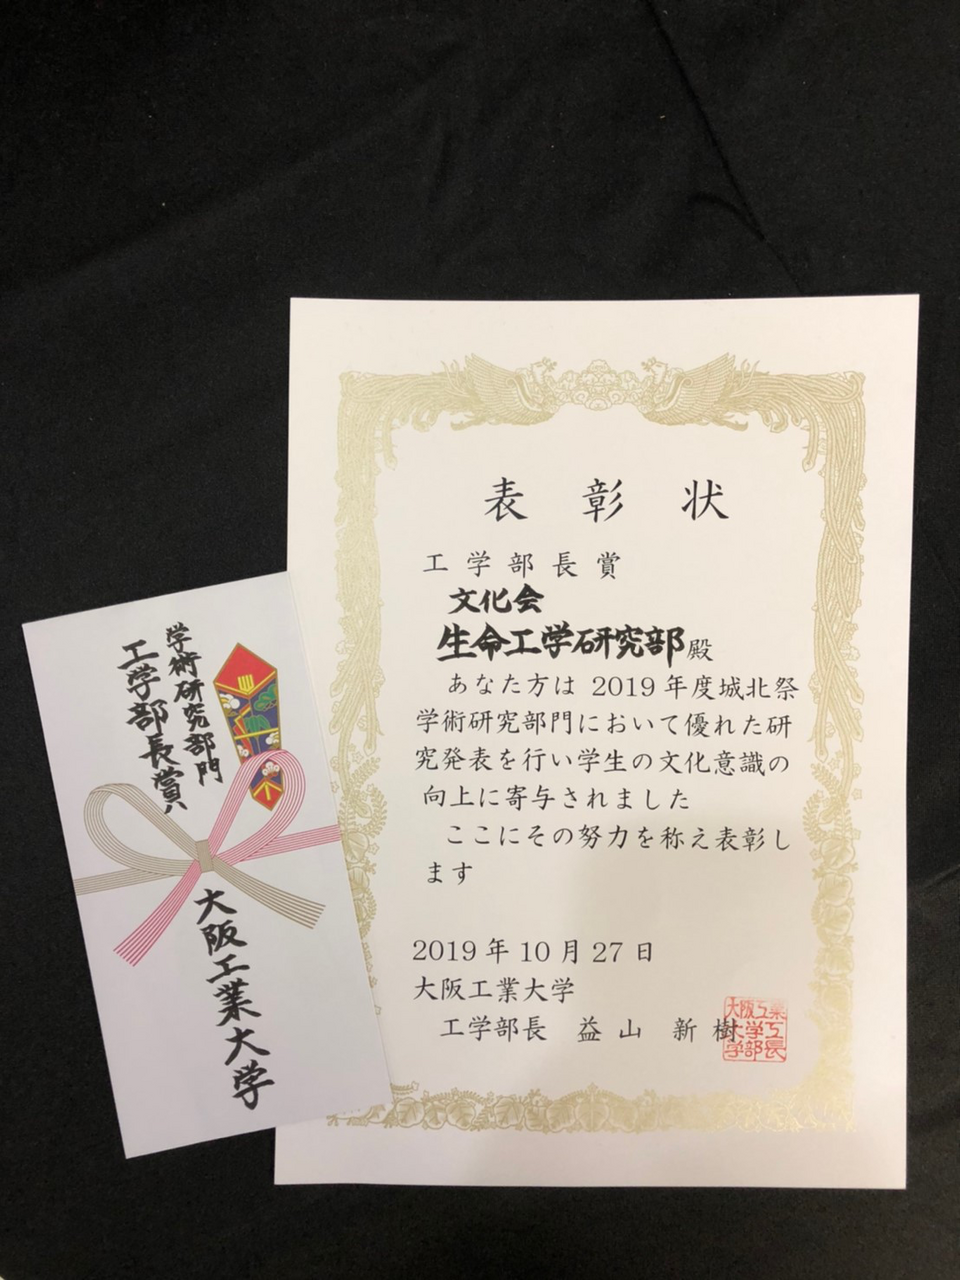 表彰状
工学部長賞
文化会
生命工学研究部殿
あなた方は 2019 年度城北祭
学術研究部門において優れた研
究発表を行い学生の文化意識の
向上に寄与されました
ここにその努力を称え表彰し
ます
2019 年 10 月 27 日
大阪工業大学
工学部長 益山 新樹
大阪工業
大学工
学部長
学術研究部門
工学部長賞
大阪工業大学